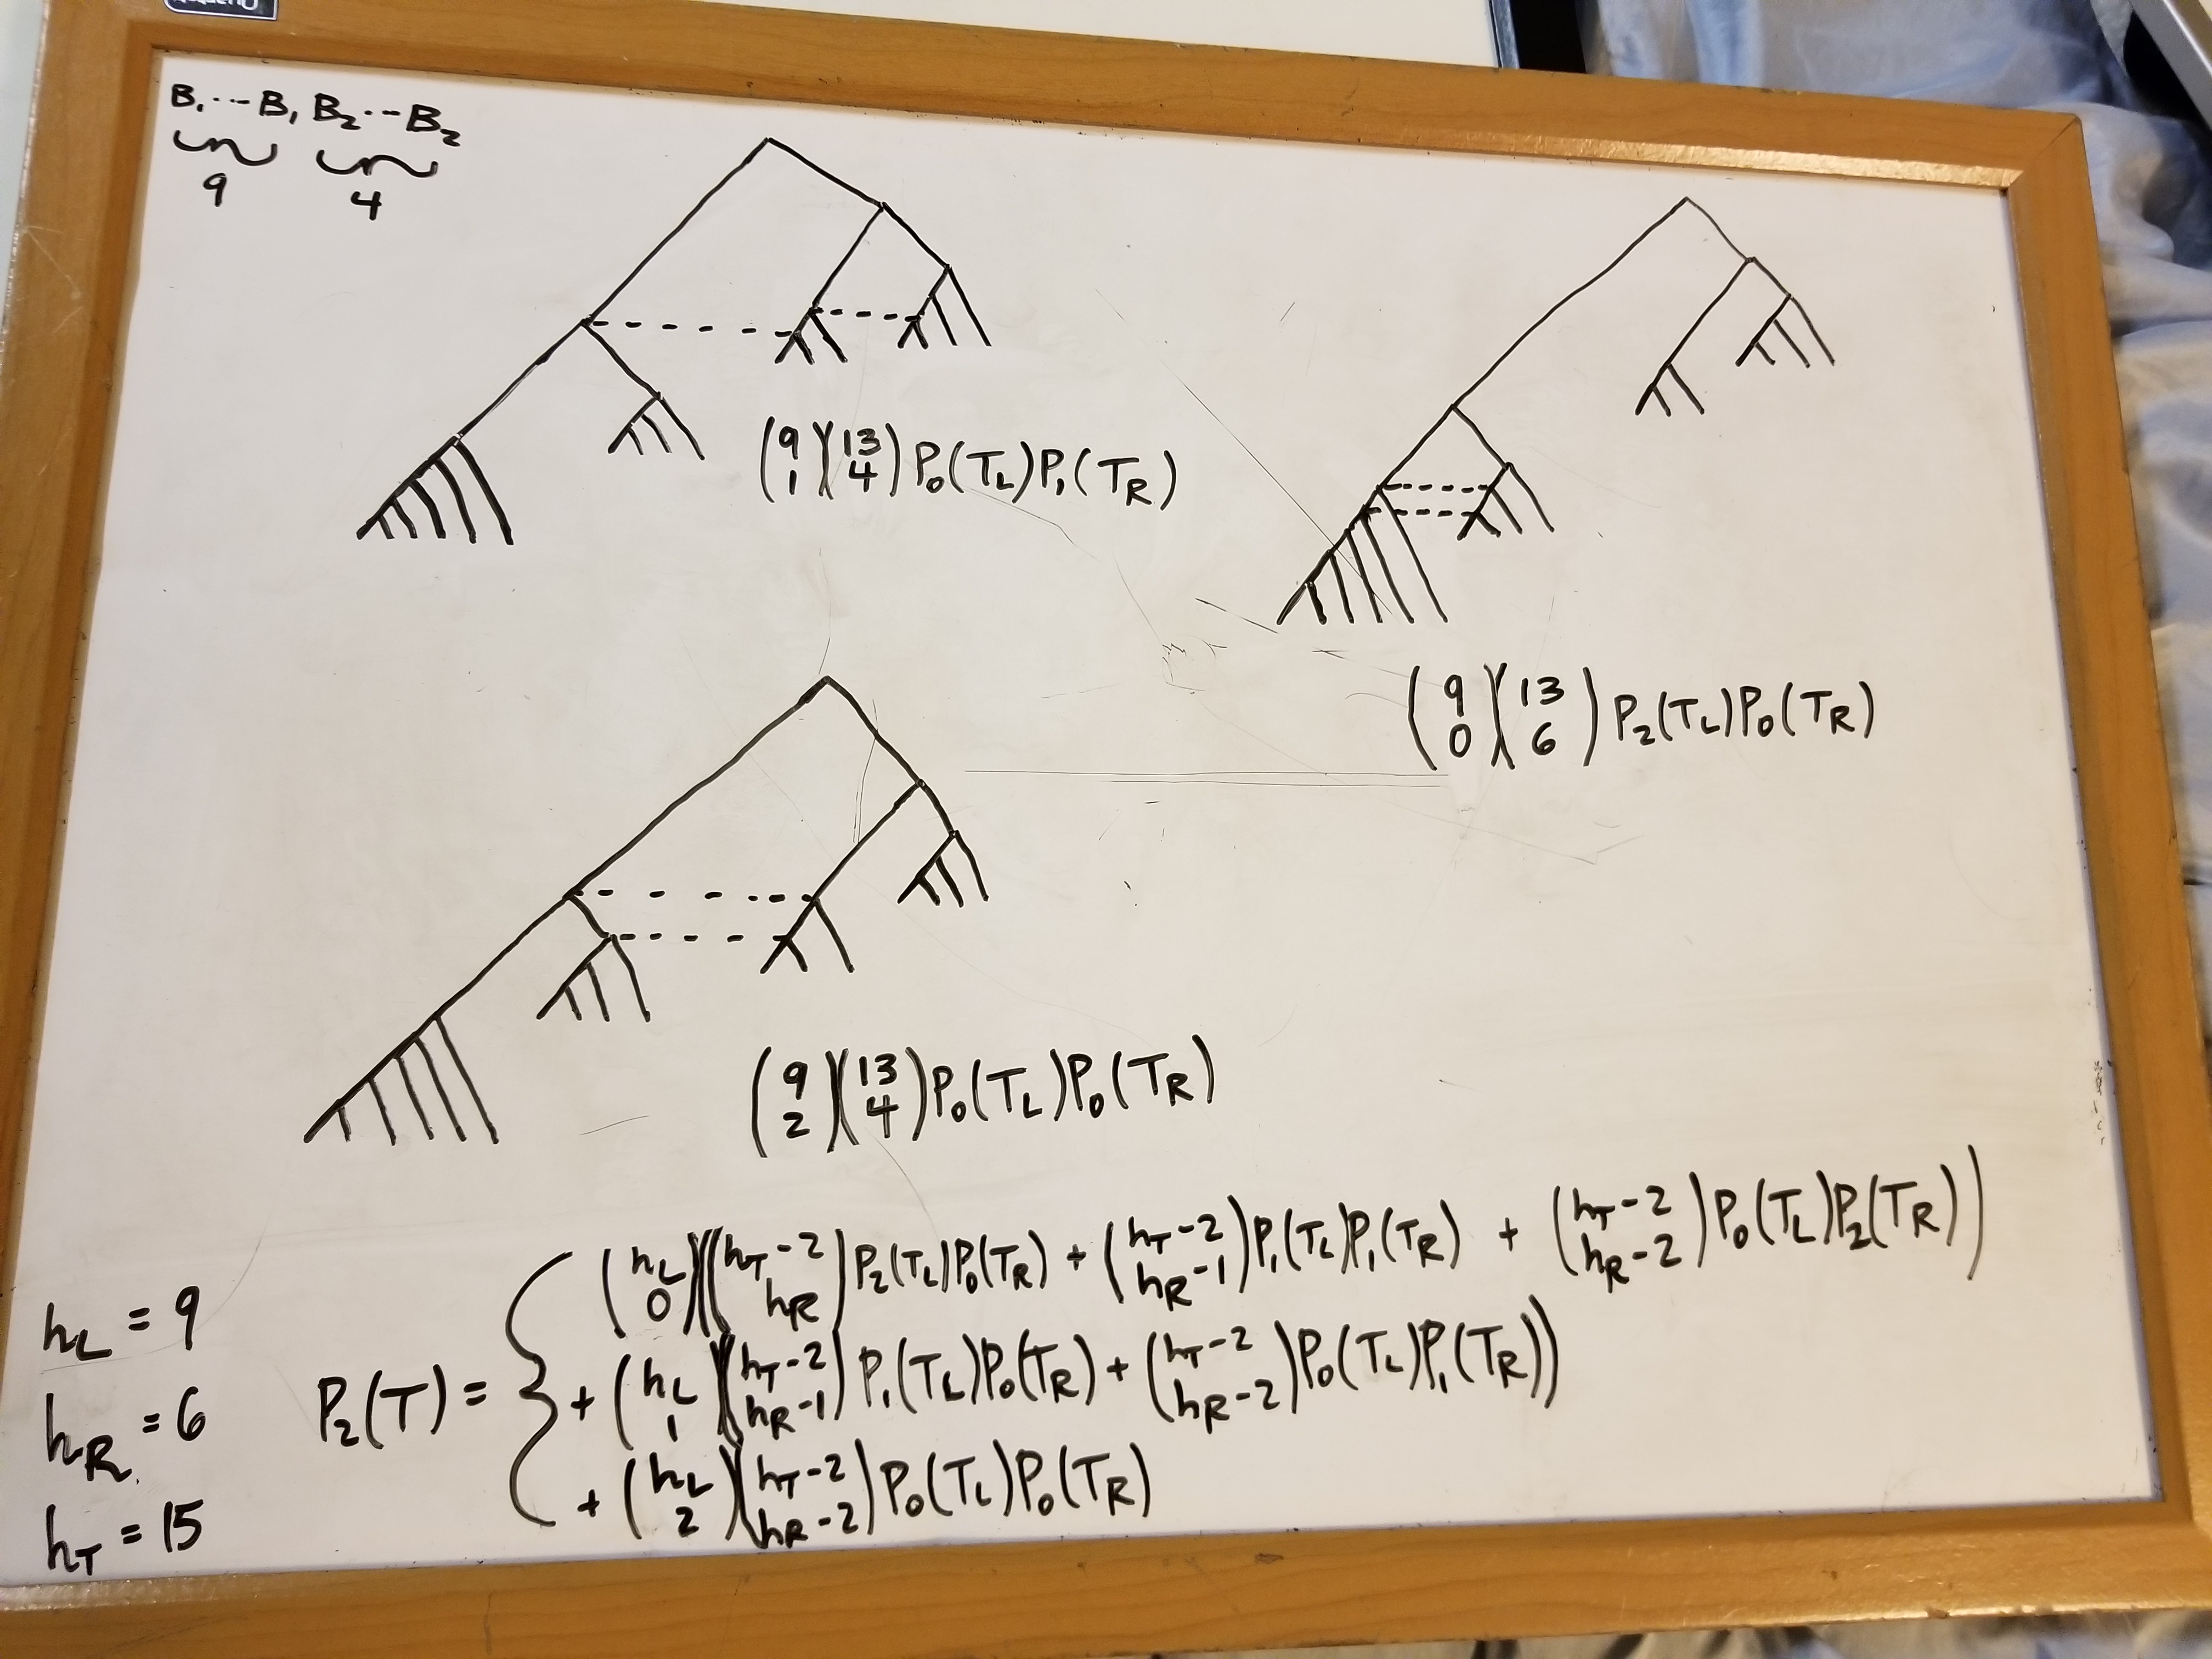 B₁ ··· B₁ B₂ ··· B₂
9 4
(9 1)(13 4) P₀(T_L)P₁(T_R)
(9 0)(13 6) P₂(T_L)P₀(T_R)
(9 2)(13 4) P₀(T_L)P₀(T_R)
h_L = 9
h_R = 6
h_T = 15
P₂(T) = {
(h_L 0)((h_T-2 h_R) P₂(T_L)P₀(T_R) + (h_T-2 h_R-1) P₁(T_L)P₁(T_R) + (h_T-2 h_R-2) P₀(T_L)P₂(T_R))
+ (h_L 1)((h_T-2 h_R-1) P₁(T_L)P₀(T_R) + (h_T-2 h_R-2) P₀(T_L)P₁(T_R))
+ (h_L 2)(h_T-2 h_R-2) P₀(T_L)P₀(T_R)